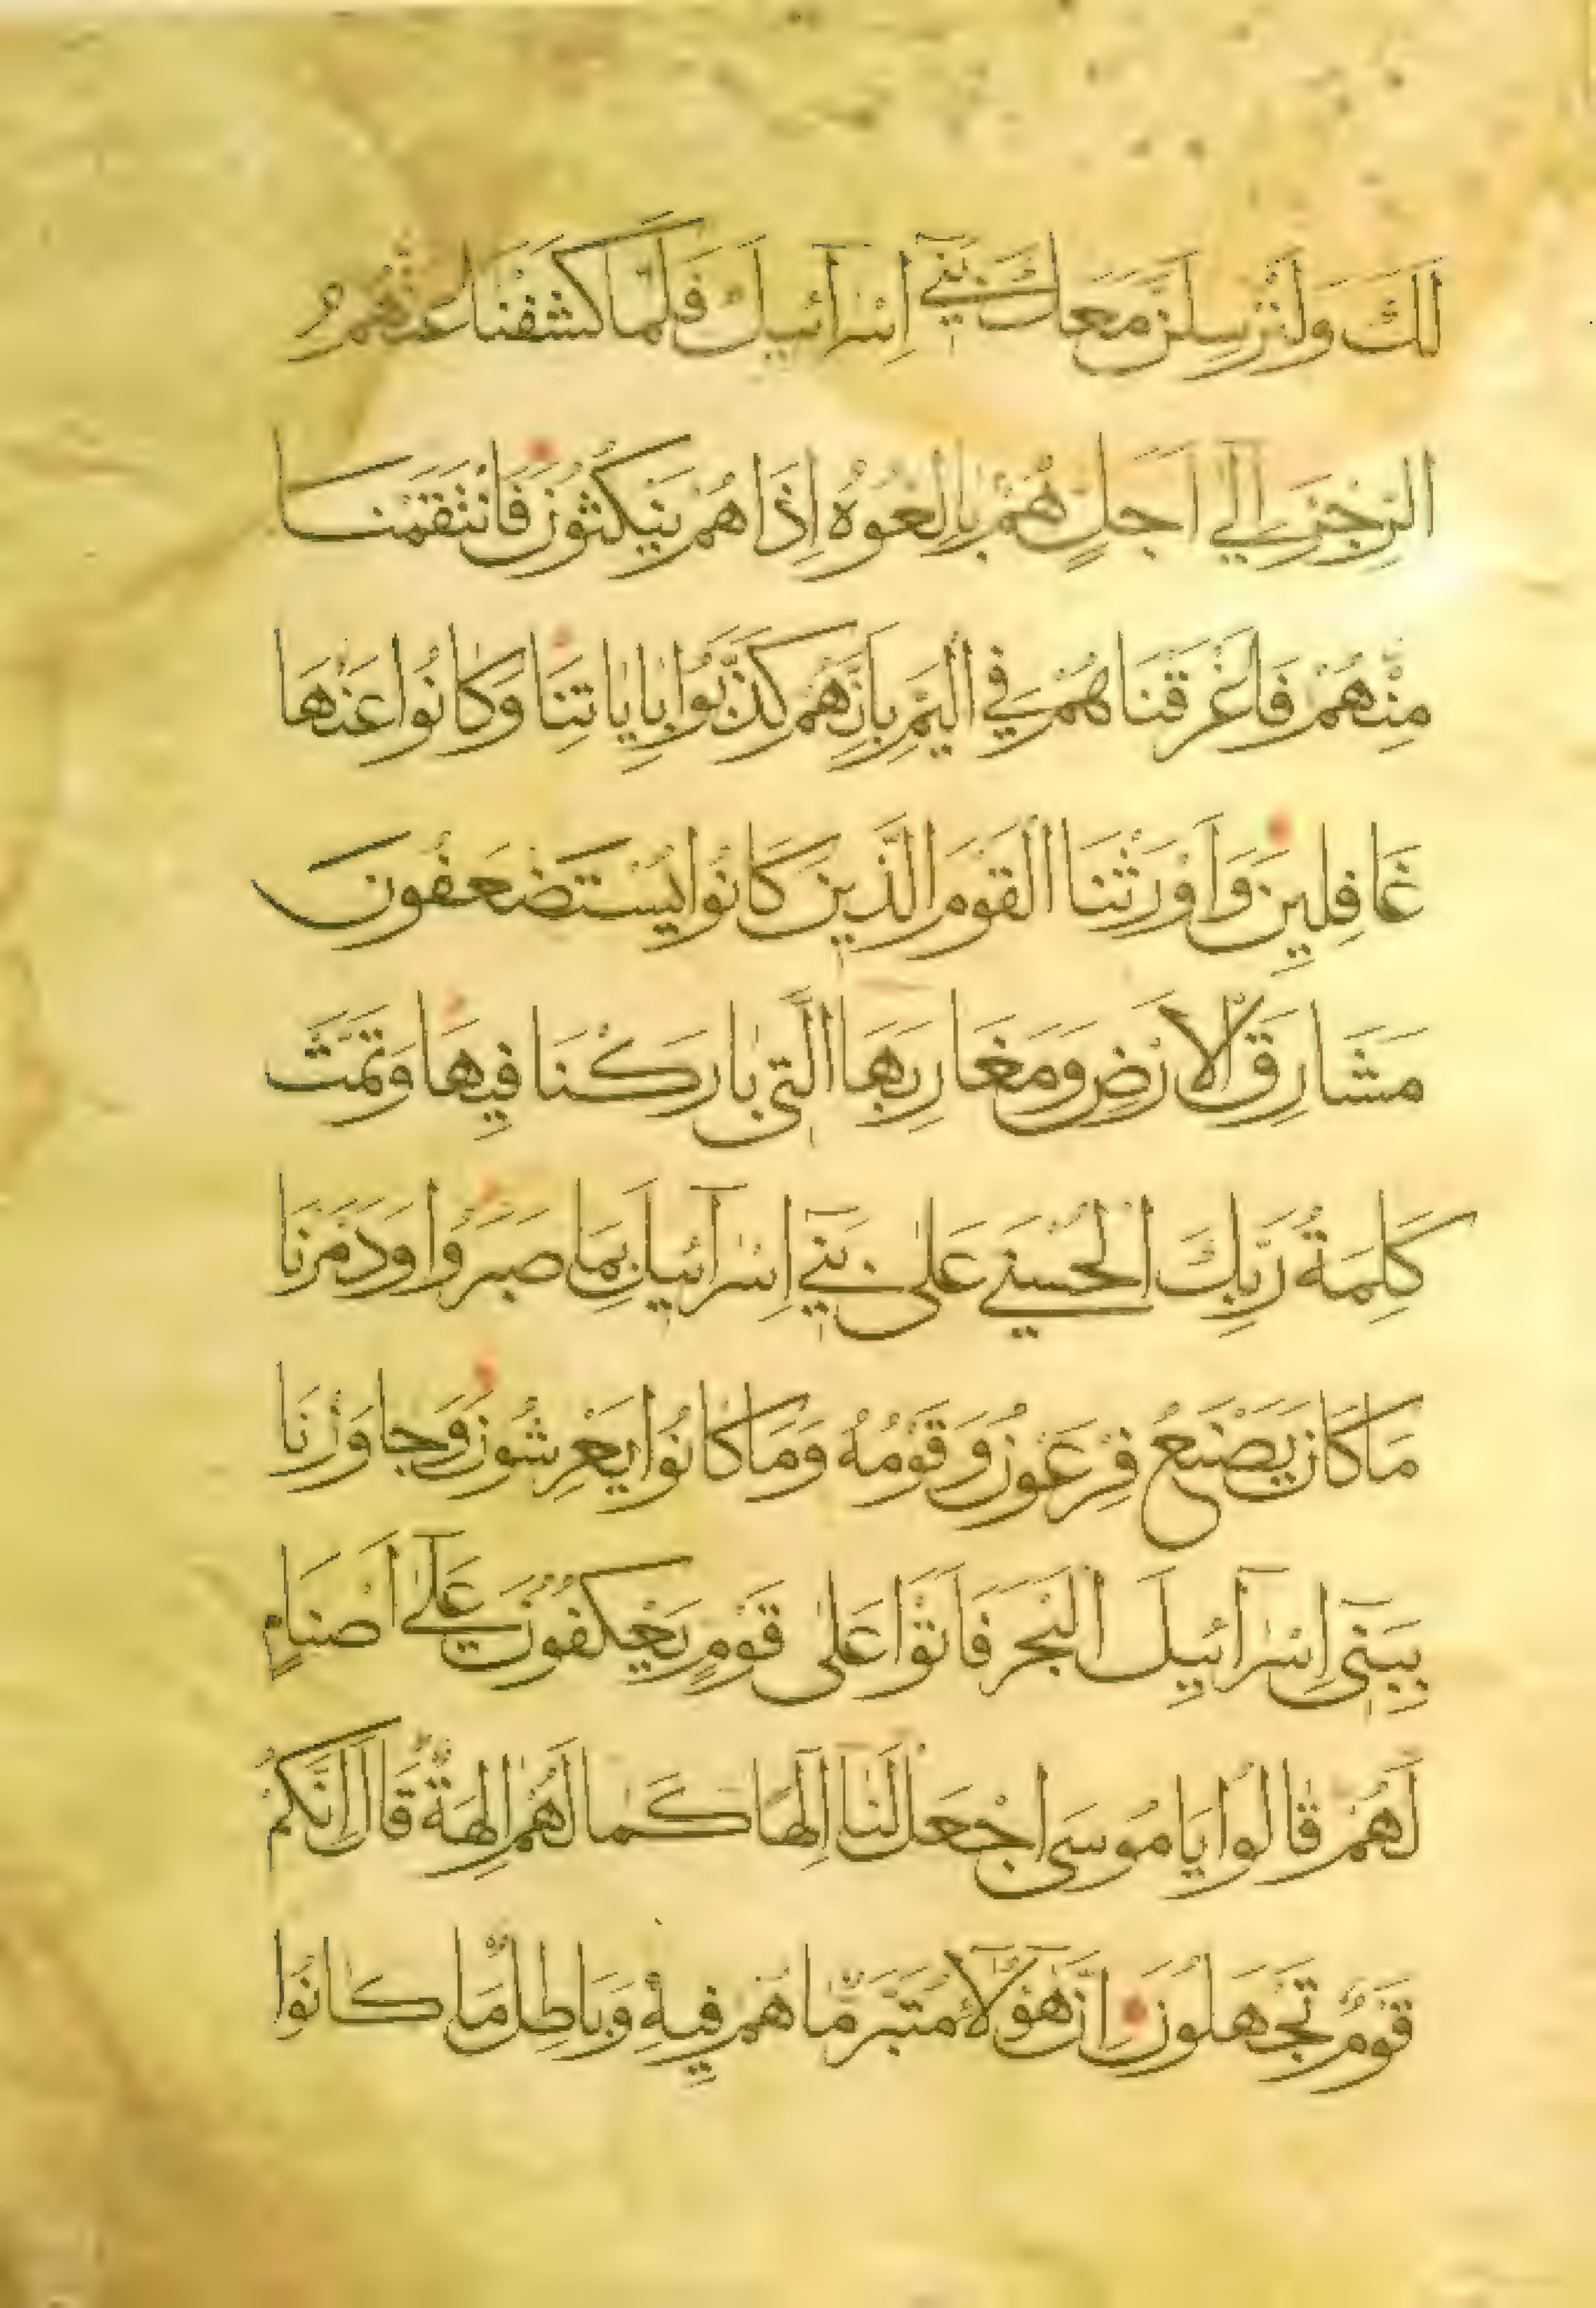 لَكَ وَلَنُرْسِلَنَّ مَعَكَ بَنِىٓ اِسْرَآئيلَ فَلَمَّا كَشَفْنَا عَنْهُمُ
الرِّجْزَ اِلٰٓى اَجَلٍ هُمْ بَالِغُوهُ اِذَا هُمْ يَنْكُثُونَ فَانْتَقَمْنَا
مِنْهُمْ فَاَغْرَقْنَاهُمْ فِى الْيَمِّ بِاَنَّهُمْ كَذَّبُوا بِاٰيَاتِنَا وَكَانُوا عَنْهَا
غَافِلِينَ وَاَوْرَثْنَا الْقَوْمَ الَّذِينَ كَانُوا يُسْتَضْعَفُونَ
مَشَارِقَ الْاَرْضِ وَمَغَارِبَهَا الَّتِى بَارَكْنَا فِيهَا وَتَمَّتْ
كَلِمَةُ رَبِّكَ الْحُسْنٰى عَلٰى بَنِىٓ اِسْرَآئيلَ بِمَا صَبَرُوا وَدَمَّرْنَا
مَا كَانَ يَصْنَعُ فِرْعَوْنُ وَقَوْمُهُ وَمَا كَانُوا يَعْرِشُونَ وَجَاوَزْنَا
بِبَنِىٓ اِسْرَآئِيلَ الْبَحْرَ فَاَتَوْا عَلٰى قَوْمٍ يَعْكُفُونَ عَلٰٓى اَصْنَامٍ
لَهُمْ قَالُوا يَا مُوسَى اجْعَلْ لَنَا اِلٰهًا كَمَا لَهُمْ اٰلِهَةٌ قَالَ اِنَّكُمْ
قَوْمٌ تَجْهَلُونَ اِنَّ هٰٓؤُلَآءِ مُتَبَّرٌ مَا هُمْ فِيهِ وَبَاطِلٌ مَا كَانُوا